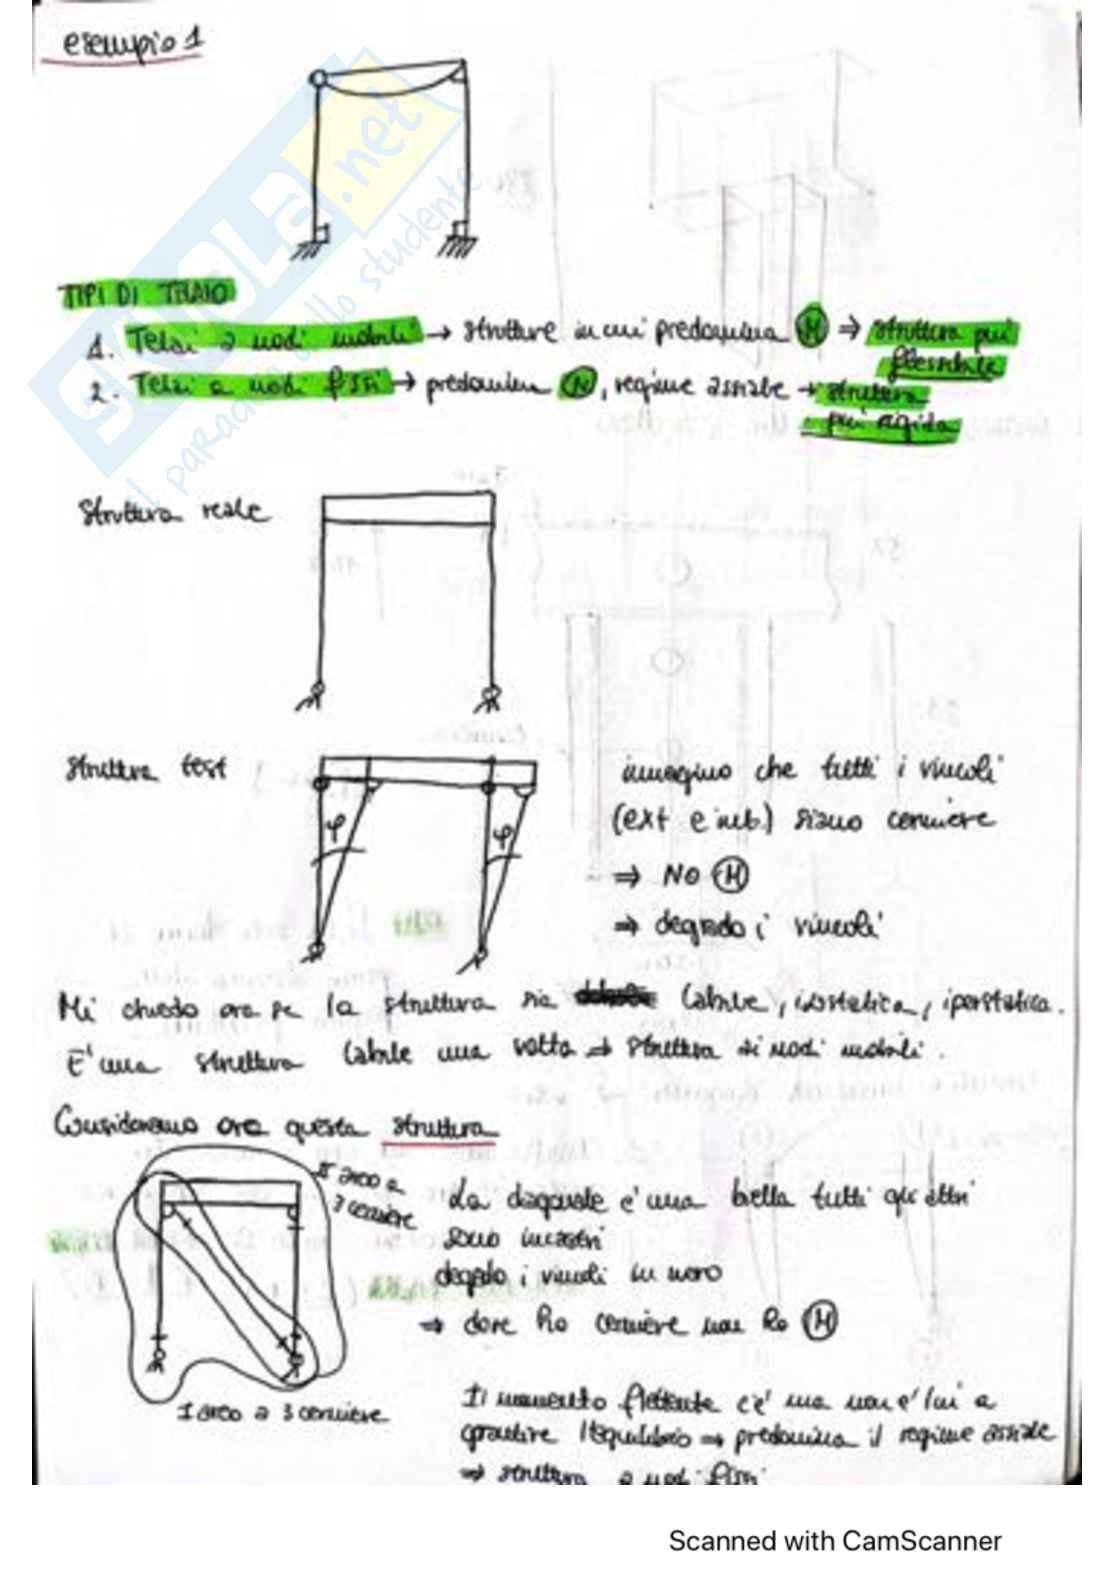 esempio 1
TIPI DI TELAIO
1. Telai a nodi mobili → strutture in cui predomina M ⇒ struttura più
flessibile
2. Telai a nodi fissi → predomina N, regime assiale → struttura
più rigida
Struttura reale
struttura test
φ φ
immagino che tutti i vincoli
(ext e int.) siano cerniere
⇒ NO M
⇒ degrado i vincoli
Mi chiedo ora se la struttura sia labile, isostatica, iperstatica.
E' una struttura labile una volta ⇒ struttura ai nodi mobili.
Consideriamo ora questa struttura
II arco a
3 cerniere
La diagonale e' una biella tutti gli altri
sono incastri
degrado i vincoli in nero
⇒ dove ho cerniere non ho M
I arco a 3 cerniere
Il momento flettente c'e' ma non e' lui a
garantire l'equilibrio ⇒ predomina il regime assiale
⇒ struttura a nodi fissi
SKUOLA.net
il paradiso dello studente
Scanned with CamScanner